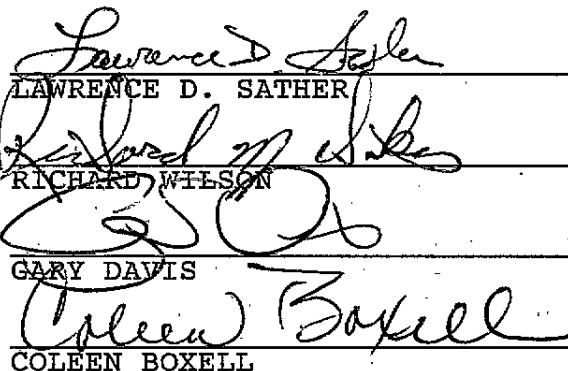 Lawrence D. Sather
LAWRENCE D. SATHER
Richard M
RICHARD WILSON
GARY DAVIS
Coleen Boxell
COLEEN BOXELL